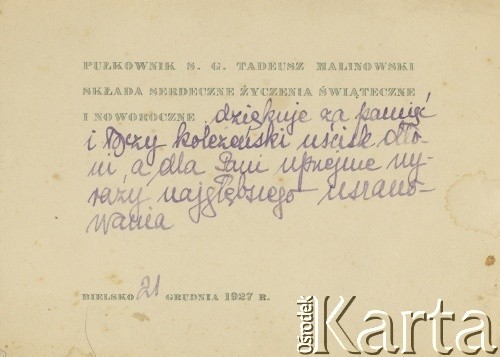 PUŁKOWNIK S. G. TADEUSZ MALINOWSKI
SKŁADA SERDECZNE ŻYCZENIA ŚWIĄTECZNE
I NOWOROCZNE dziękuje za pamięć
i łączy koleżeński uścisk dło-
ni, a dla Pani uprzejme wy-
razy najgłębszego uszano-
wania
BIELSKO 21 GRUDNIA 1927 R.
Ośrodek Karta